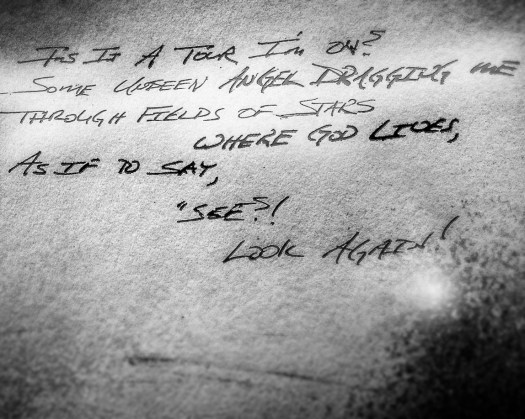 THIS IS A TOUR I'M ON?
SOME UNSEEN ANGEL DRAGGING ME
THROUGH FIELDS OF STARS
WHERE GOD LIVES,
AS IF TO SAY,
"SEE?!
LOOK AGAIN!